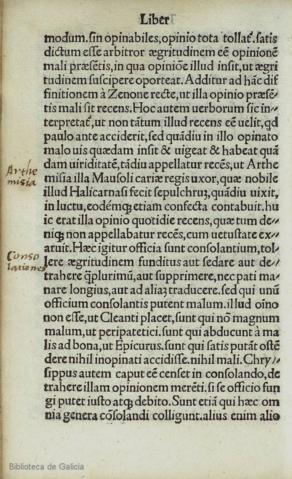 Liber
modum. sin opinabiles, opinio tota tollat̃. satis
dictum esse arbitror ægritudinem eē opinionē
mali præsētis, in qua opinióe illud insit, ut ægri
tudinem suscipere oporteat. Additur ad hāc dif
finitionem à Zenone recte, ut illa opinio præsē-
tis mali sit recens. Hoc autem uerborum sic in-
terpretat̃, ut non tātum illud recens eē uelit, qđ
paulo ante acciderit, sed quādiu in illo opinato
malo uis quædam insit & uigeat & habeat quā
dam uiriditatē, tādiu appellatur recēs, ut Arthe
misia illa Mausoli cariæ regis uxor, quæ nobile
illud Halicarnasi fecit sepulchrū, quādiu uixit,
in luctu, eodēmq; etiam confecta contabuit. hu
ic erat illa opinio quotidie recens, quæ tum de-
niq; non appellabatur recēs, cum uetustate ex-
aruit. Hæc igitur officia sunt consolantium, tol-
lere ægritudinem funditus aut sedare aut de-
trahere q̃plurimū, aut supprimere, nec pati ma-
nare longius, aut ad alia traducere. sed qui unū
officium consolantis putent malum. illud oīno
non esse, ut Cleanti placet, sunt qui nō magnum
malum, ut peripatetici. sunt qui abducunt à ma
lis ad bona, ut Epicurus. sunt qui satis putāt ostē
dere nihil inopinati accidisse. nihil mali. Chry-
sippus autem caput eē censet in consolando, de
trahere illam opinionem merēti. si se officio fun
gi putet iusto atq; debito. Sunt etiā qui hæc om
nia genera cōsolandi colligunt. alius enim alio
Arthe
misia
Conso
lationes
Biblioteca de Galicia